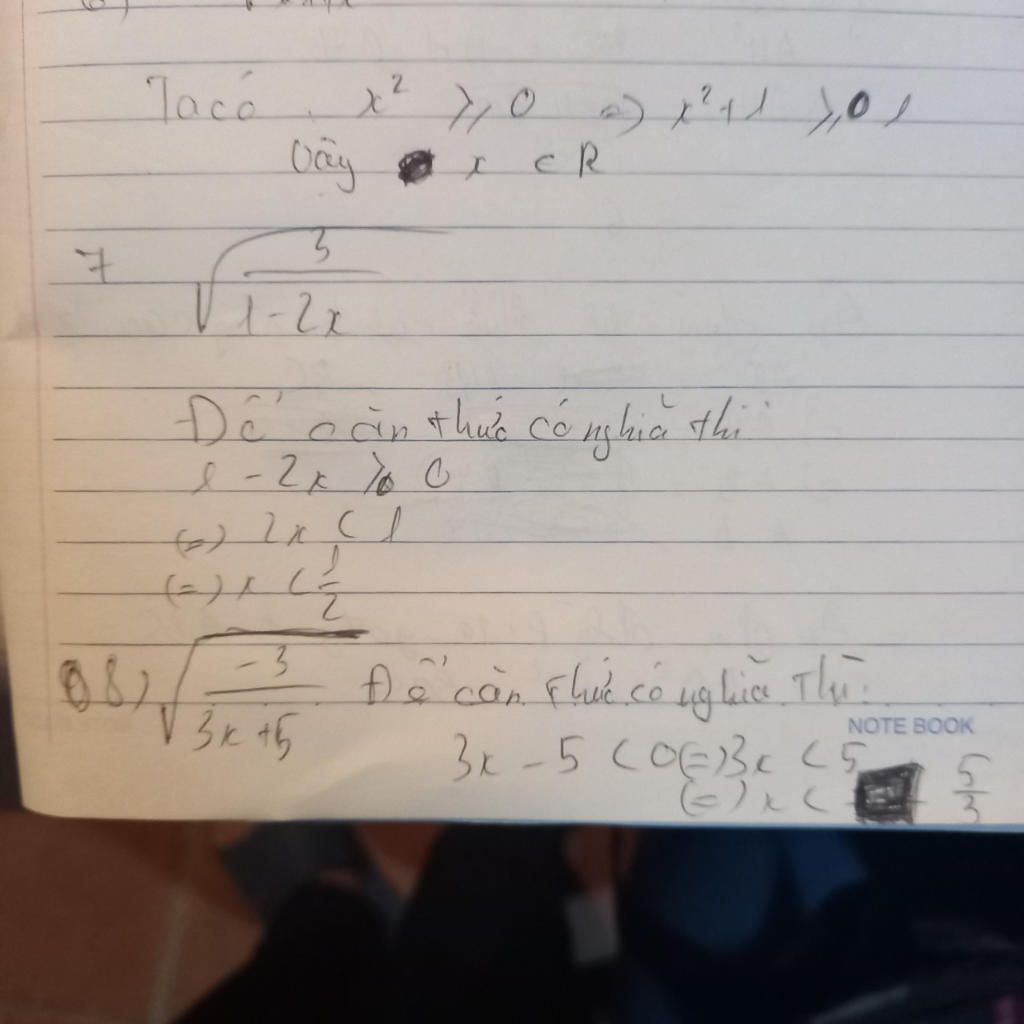 Ta có x² ⩾ 0 => x²+1 ⩾ 1
Vậy x ⊂ R
7 √(3/(1-2x))
Để căn thức có nghĩa thì
1 - 2x > 0
(=) 2x < 1
(=) x < 1/2
8) √(-3/(3x+5)) Để căn thức có nghĩa Thì:
NOTE BOOK
3x - 5 < 0 (=) 3x < 5
(=) x < 5/3